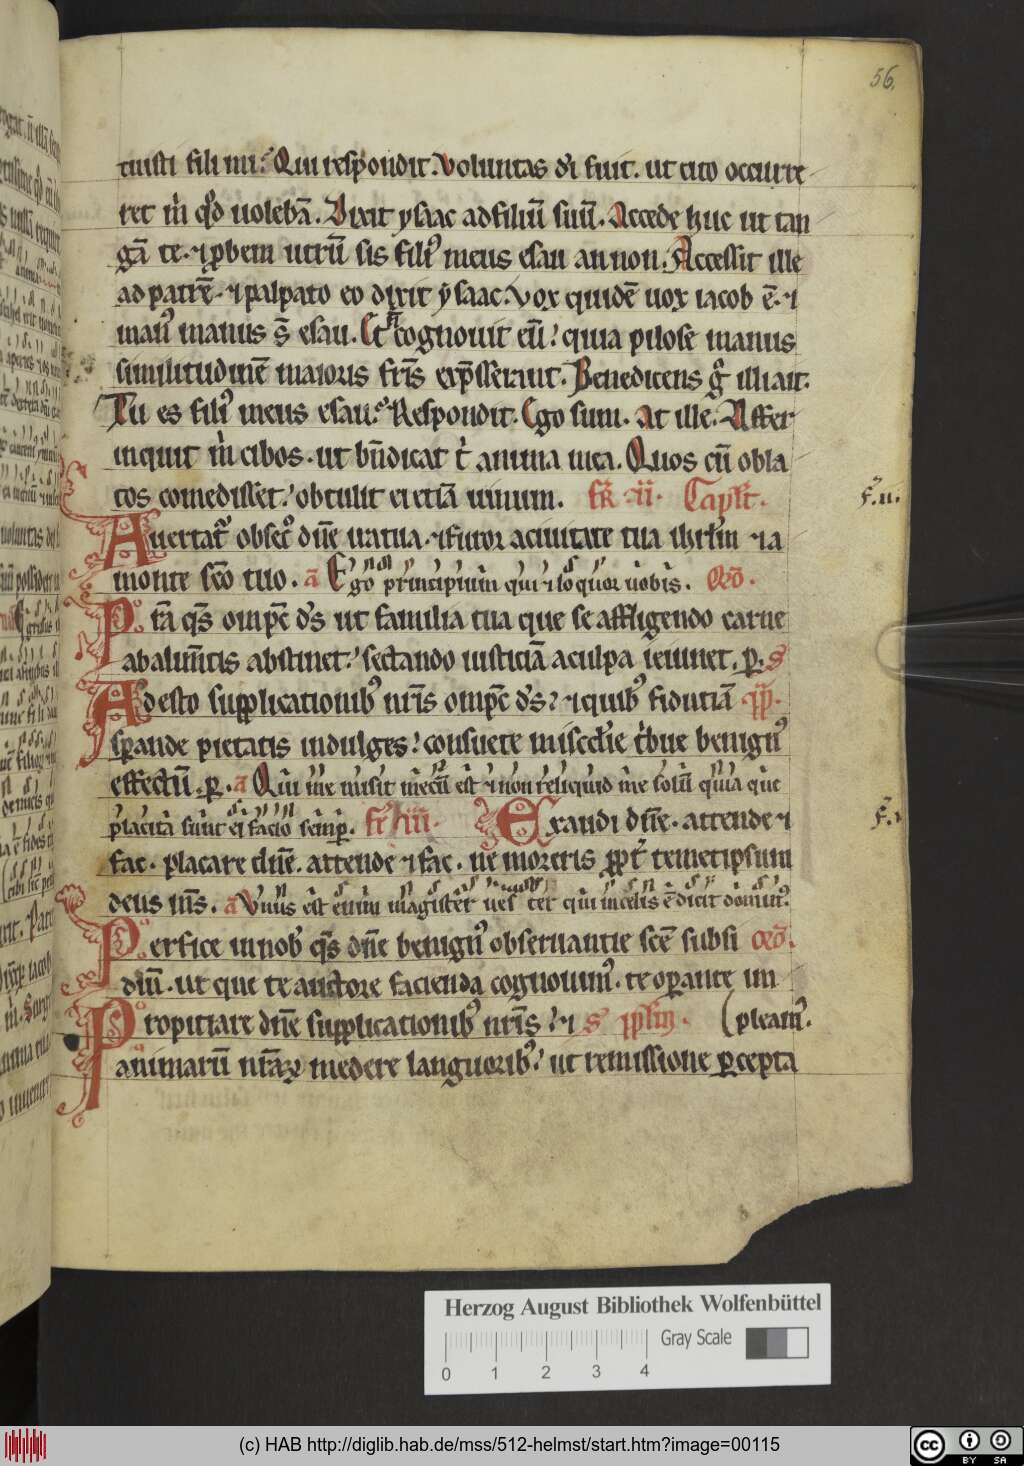 56.
tuisti fili mi? Qui respondit. Voluntas dī fuit. ut cito occurre
ret m̍ qd̓ uolebā. Dixit ysaac ad filiū suū. Accede huc ut tan
gā te. ⁊ ꝓbem utrū sis fili᷒ meus esau an non. Accessit ille
ad patrē. ⁊ palpato eo dixit ysaac. Vox quidē uox iacob ē. ⁊
man᷒ manus s̄ esau. Et n̄ cognouit eū? quia pilose manus
similitudinē maioris fr̄is exp̄sserant. Benedicens g̊ illi ait.
Tu es fili᷒ meus esau? Respondit. Ego sum. At ille. Affer
inquit m̍ cibos. ut bn̄dicat t̍ anima mea. Quos cū obla
tos comedisset? obtulit ei etiā uinum. Fr̄ ii. Capl̄t.
Auertat᷑ obsec᷑ dn̄e ira tua. ⁊ furor a ciuitate tua ihrl̄m ⁊ a
monte sc̄o tuo. a Ego principium qui ⁊ loquor uobis. Or̄o.
Pr̄a q̄s omp̄c ds̄ ut familia tua que se affligendo carne
ab alim̄tis abstinet? sectando iusticiā a culpa ieiunet. ꝑ. S
Adesto supplicationib᷒ nr̄is omp̄c ds̄? ⁊ quib᷒ fiduciā
sꝑande pietatis indulges? consuete mis̄cdie t̍bue benign᷒
effectū. ꝑ. a Qui me misit mecū est ⁊ non reliquid me solū quia que
placita sunt ei facio semꝑ. Fr̄ iii. Exaudi dn̄e. attende ⁊
fac. placare dn̄e. attende ⁊ fac. ne moreris ꝓpt᷑ temetipsum
deus m̄s. a Vnus est enim magister uester qui in celis ē dicit domin᷒.
Perfice in nob̄ q̄s dn̄e benign᷒ obseruantie sc̄e subsi Or̄o.
diū. ut que te auctore facienda cognouim᷒. te oꝑante im
Propitiare dn̄e supplicationib᷒ nr̄is? ⁊ S (pleam᷒.
animarū nr̄aꝝ medere languorib᷒? ut remissione ꝑcepta
F̄. ii.
Herzog August Bibliothek Wolfenbüttel
Gray Scale
0 1 2 3 4
(c) HAB http://diglib.hab.de/mss/512-helmst/start.htm?image=00115
cc BY SA